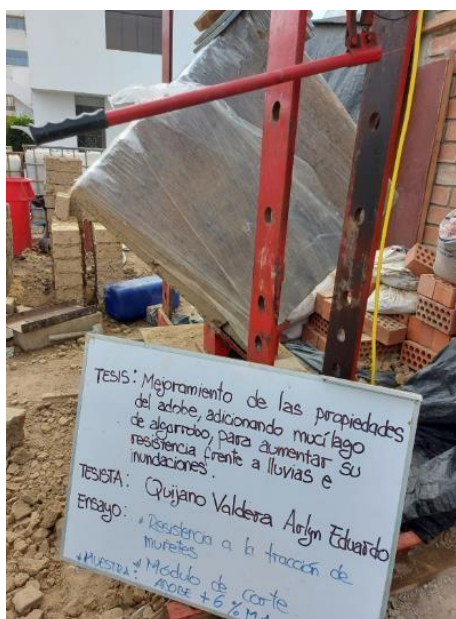 TESIS: Mejoramiento de las propiedades
del adobe, adicionando mucílago
de algarrobo, para aumentar su
resistencia frente a lluvias e
inundaciones.
TESISTA: Quijano Valdera Arlyn Eduardo
Ensayo: * Resistencia a la tracción de
muretes
* Módulo de corte
* MUESTRA: ADOBE + 6 %